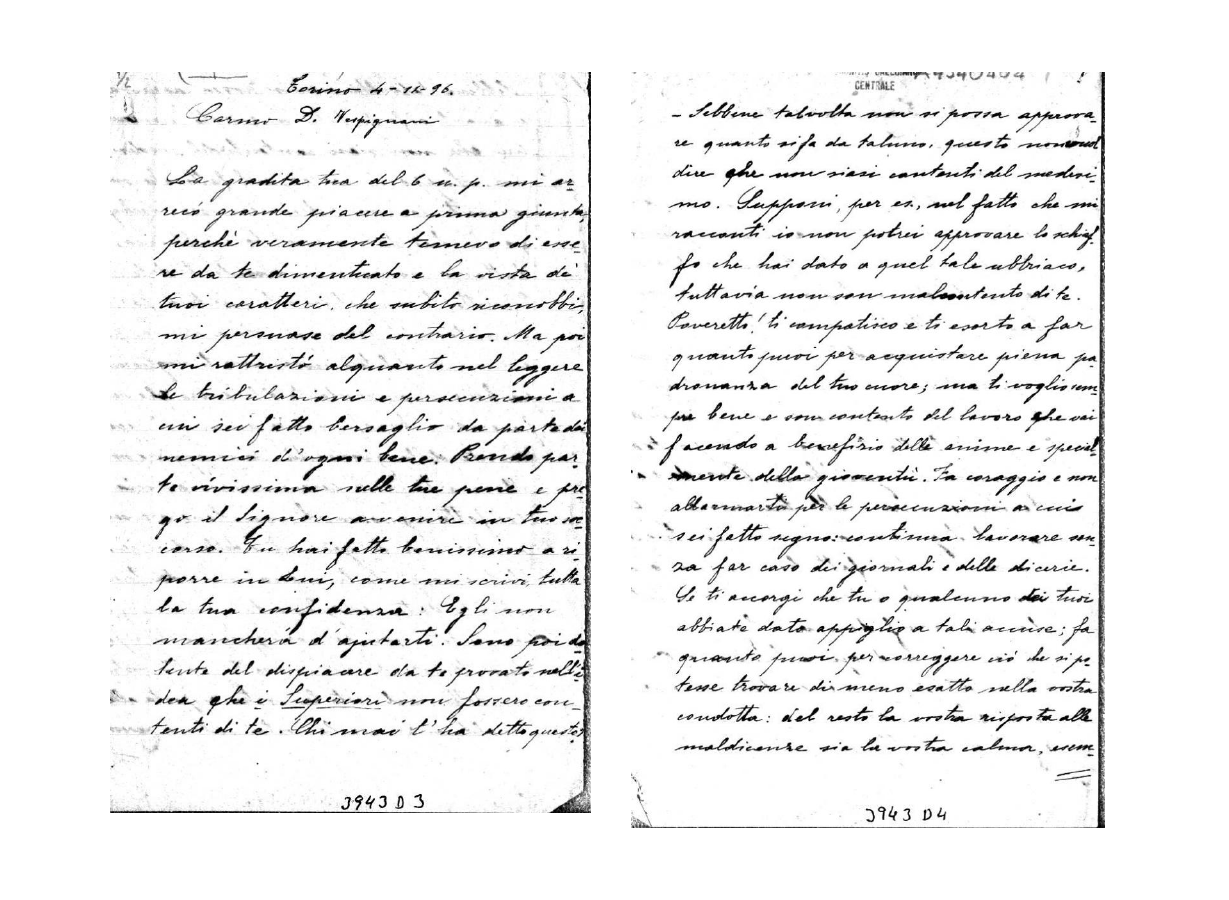 1/2
Torino 4-12-96.
Carmo D. Vespignani
La gradita tua del 6 u. p. mi ar=
recò grande piacere a prima giunta
perchè veramente temevo di esse=
re da te dimenticato e la vista de'
tuoi caratteri, che subito riconobbi,
mi persuase del contrario. Ma poi
mi rattristò alquanto nel leggere
le tribulazioni e persecuzioni a
cui sei fatto bersaglio da parte dei
nemici d'ogni bene. Prendo par=
te vivissima nelle tue pene e pre=
go il Signore a venire in tuo soc=
corso. Tu hai fatto benissimo a ri=
porre in Lui, come mi scrivi, tutta
la tua confidenza: Egli non
mancherà d'ajutarti. Sono poi do=
lente del dispiacere da te provato nell'i=
dea che i Superiori non fossero con=
tenti di te. Chi mai l'ha detto questo?
3943 D 3
CENTRALE
- Sebbene talvolta non si possa approva=
re quanto si fa da taluno, questo non vuol
dire che non siasi contenti del medesi=
mo. Supponi, per es., nel fatto che mi
racconti io non potrei approvare lo schiaf=
fo che hai dato a quel tale ubbriaco,
tuttavia non son malcontento di te.
Poveretto! ti compatisco e ti esorto a far
quanto puoi per acquistare piena pa
dronanza del tuo cuore; ma ti voglio sem=
pre bene e son contento del lavoro che vai
facendo a benefizio delle anime e special
mente della gioventù. Fa coraggio e non
allarmarti per le persecuzioni a cui
sei fatto segno: continua lavorare sen=
za far caso dei giornali e delle dicerie.
Se ti accorgi che tu o qualcuno dei tuoi
abbiate dato appiglio a tali accuse; fa
quanto puoi per correggere ciò che si po=
tesse trovare di meno esatto nella vostra
condotta: del resto la vostra risposta alle
maldicenze sia la vostra calma, esem=
3943 D4